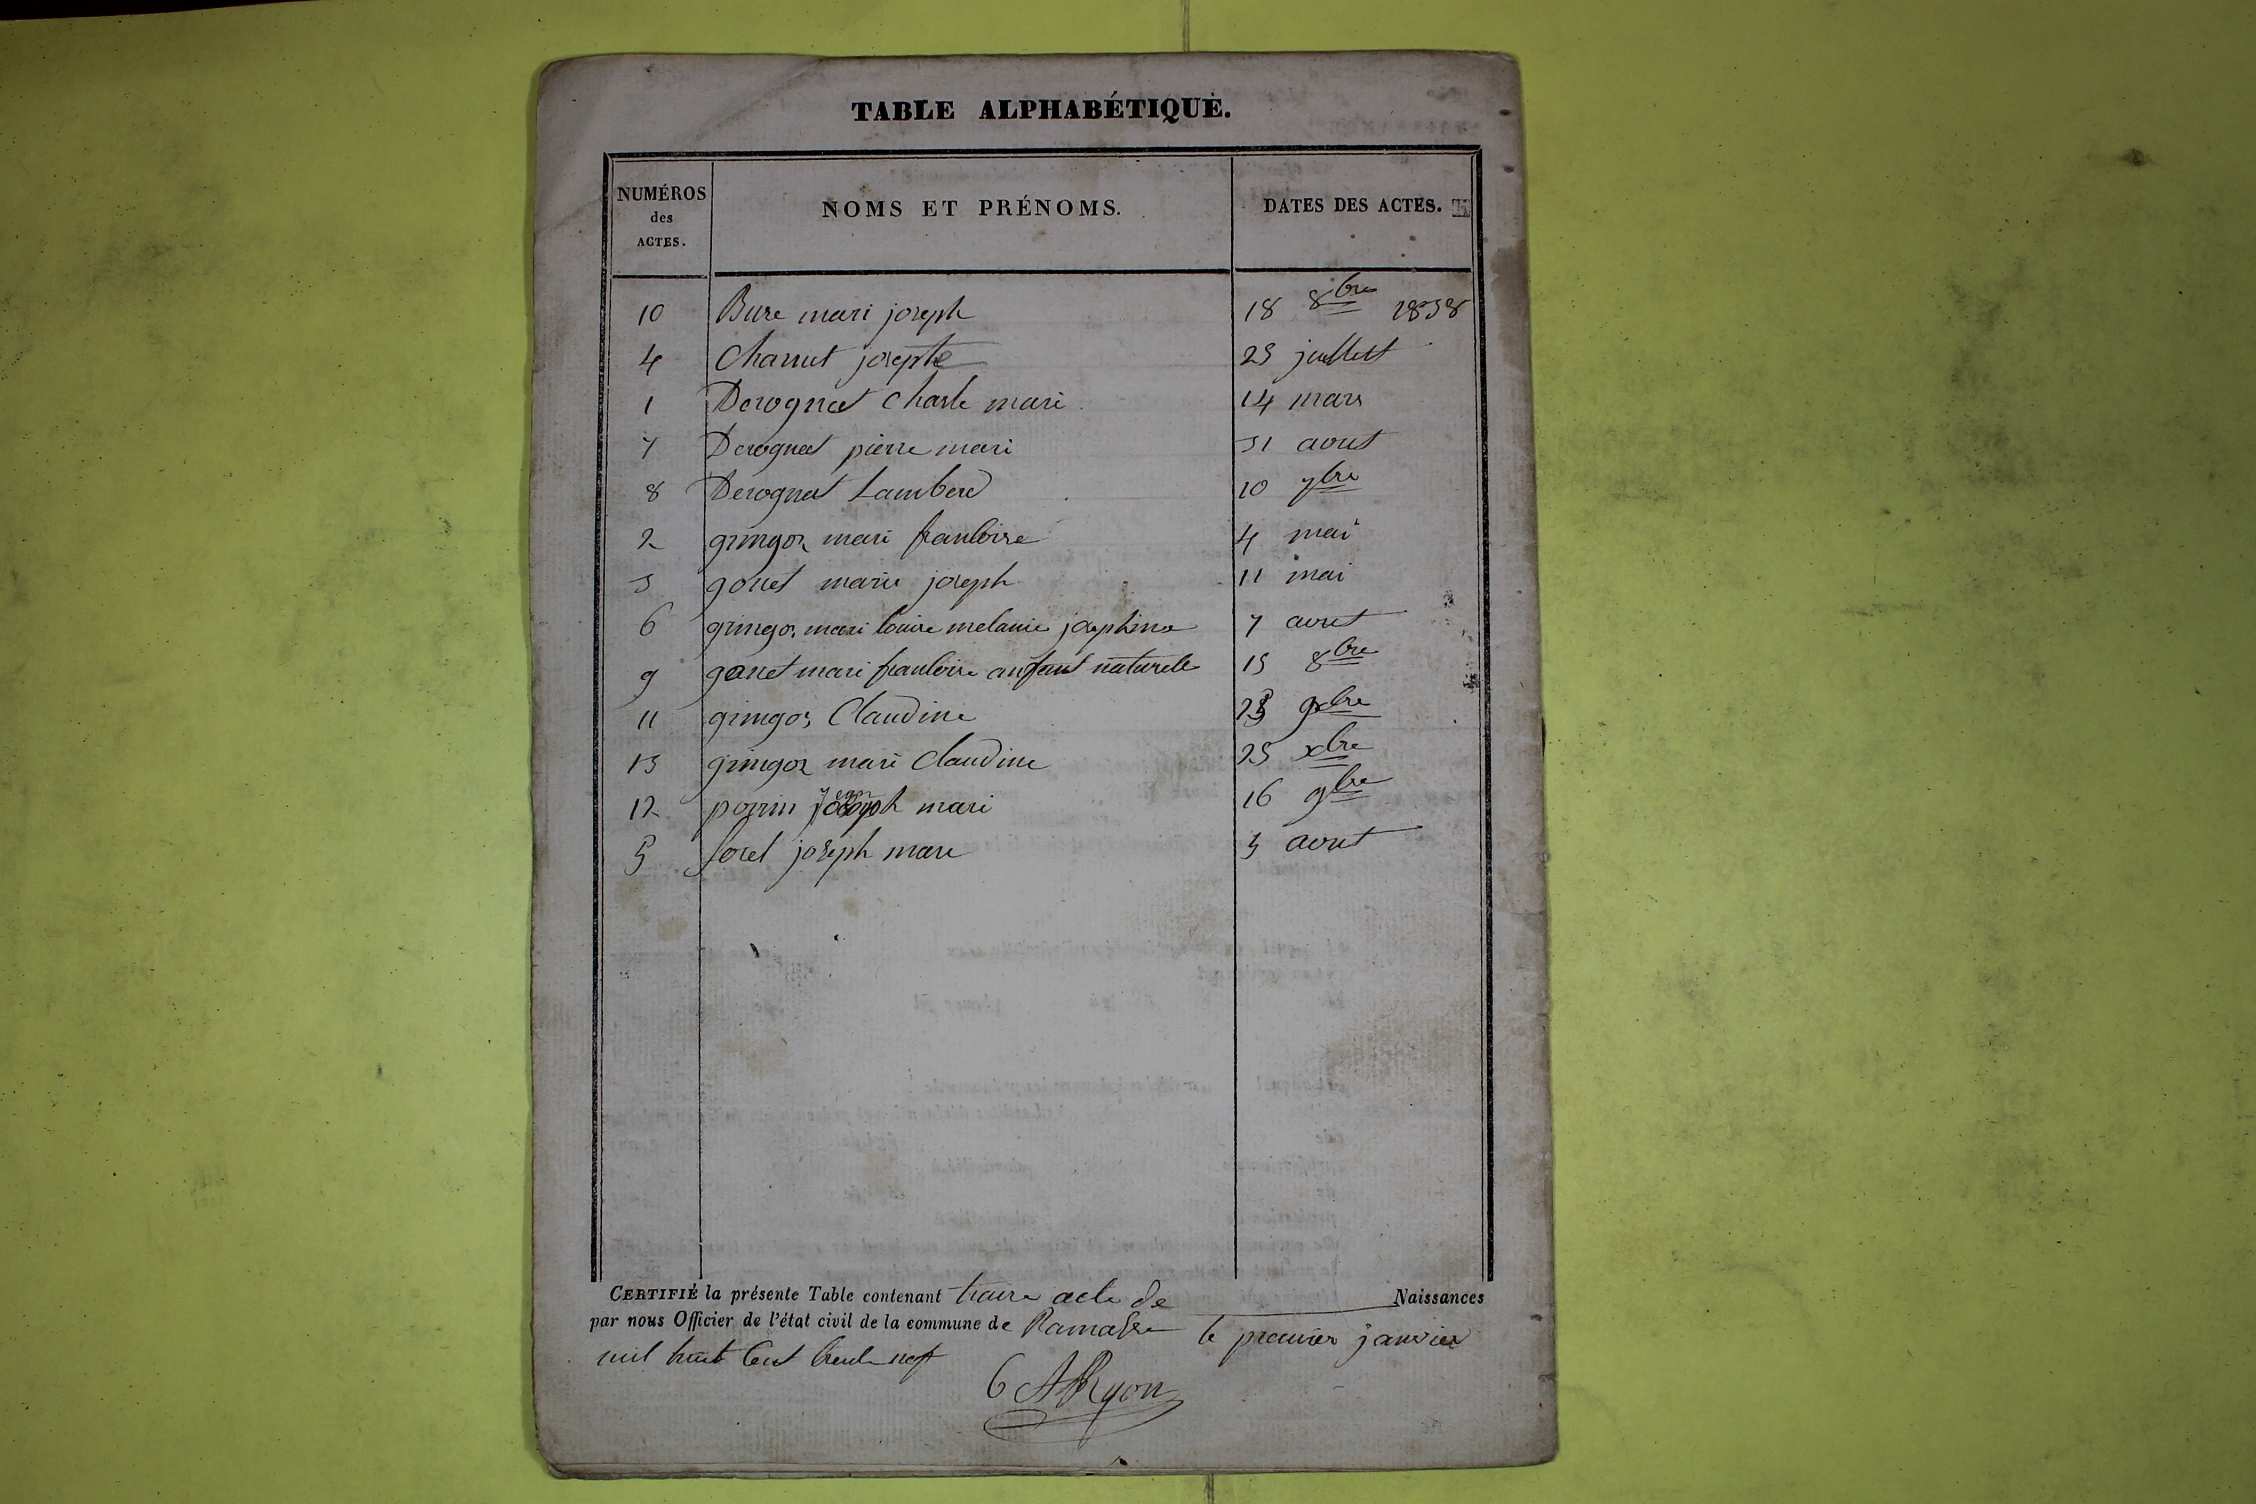 TABLE ALPHABÉTIQUE.
NUMÉROS des ACTES. NOMS ET PRÉNOMS. DATES DES ACTES.
10 Bure mari joseph 18 8bre 1838
4 Charrut josephte 23 juillet
1 Derognat Charle mari 14 mars
7 Derognat pierre mari 31 aout
8 Derognat Lambere 10 7bre
2 gringoz mari franloise 4 mai
3 gonet marie joseph 11 mai
6 gringoz mari louise melanie josephine 7 aout
9 gonet mari franloise anfant naturele 15 8bre
11 gringoz Claudine 9bre
13 gringoz mari Claudine 25 xbre
12 perrin mari 16 9bre
5 sorel joseph mari 3 aout
CERTIFIÉ la présente Table contenant traize acte de Naissances
par nous Officier de l'état civil de la commune de Ramasse le premier janvier
mil huit Cent trente neft